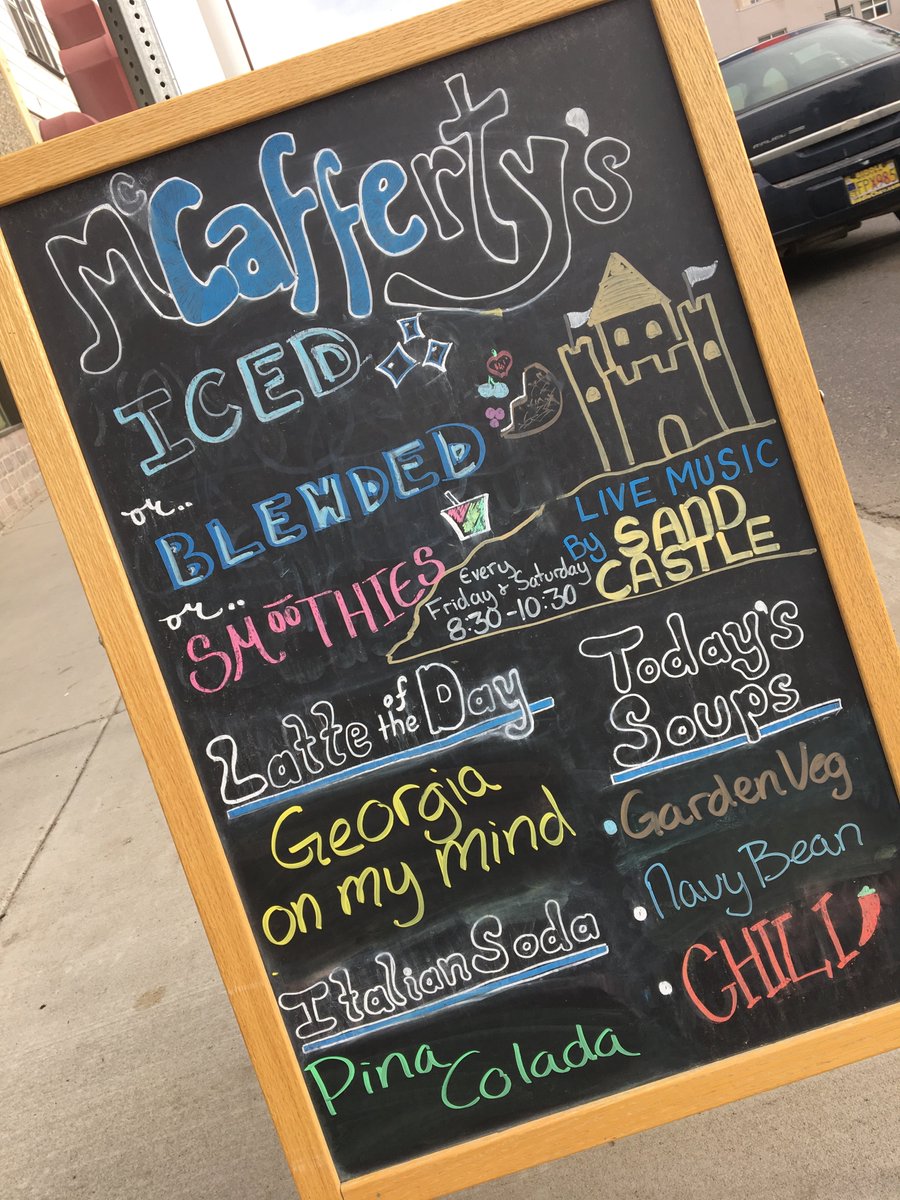 McCafferty's
ICED
or..
BLENDED
or..
SMOOTHIES
LIVE MUSIC
By SAND
CASTLE
Every
Friday & Saturday
8:30-10:30
Latte of the Day
Georgia
on my mind
Italian Soda
Pina Colada
Today's
Soups
• Garden Veg
• Navy Bean
• CHILI